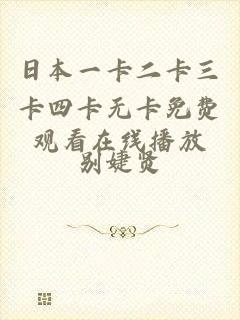 日本一卡二卡三
卡四卡无卡免费
观看在线播放
别婕贤